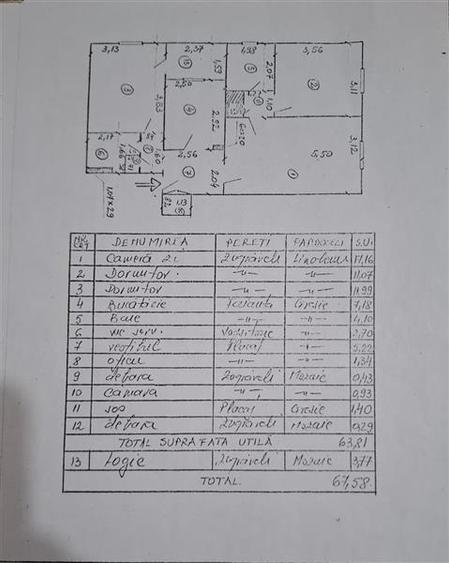 3,13
2,37
1,98
3,56
15
1,59
5
2,07
2
3,11
3
2,50
3,83
4
2,52
1,10
60x20
2,17
6
1,66
1,60
2,56
7
2,04
5,50
3,12
1
1,04x2,9
DENUMIREA PERETI PARDOSELI S.U.
1 Cameră zi Zugrăveli Linoleum 17,16
2 Dormitor -"- -"- 11,07
3 Dormitor -"- -"- 11,99
4 Bucătărie Faianță Gresie 7,18
5 Baie -"- -"- 4,10
6 wc serv. -"- 2,70
7 vestibul Placaj -"- 5,22
8 oficiu -"- -"- 1,34
9 debara Zugrăveli Mozaic 0,43
10 Camara -"- -"- 0,93
11 sas Placaj Gresie 1,40
12 debara Zugrăveli Mozaic 0,29
TOTAL SUPRAFATA UTILĂ 63,81
13 Logie Zugrăveli Mozaic 3,77
TOTAL. 67,58.